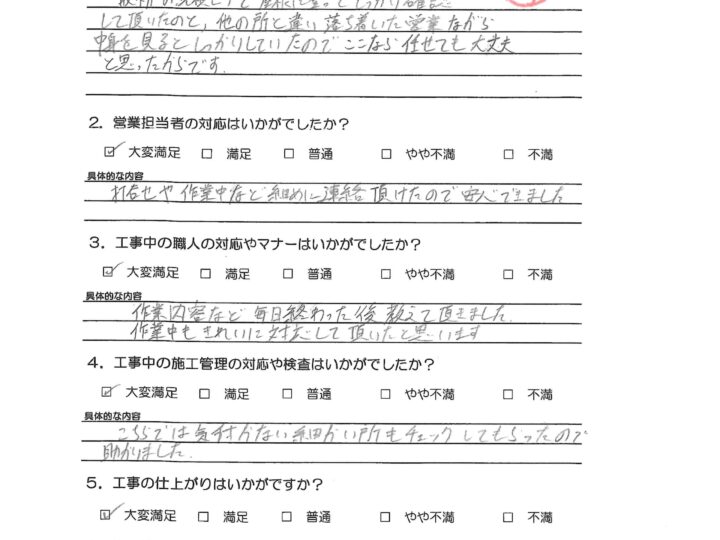 して頂いたのと、他の所と違い落ち着いた営業ながら
中身を見るとしっかりしていたのでここなら任せても大丈夫
と思ったからです。
2．営業担当者の対応はいかがでしたか？
☑ 大変満足 □ 満足 □ 普通 □ やや不満 □ 不満
具体的な内容
打合せや作業中など細めに連絡頂けたので安心できました
3．工事中の職人の対応やマナーはいかがでしたか？
☑ 大変満足 □ 満足 □ 普通 □ やや不満 □ 不満
具体的な内容
作業内容など毎日終わった後教えて頂きました。
作業中もきれいに対応して頂いたと思います
4．工事中の施工管理の対応や検査はいかがでしたか？
☑ 大変満足 □ 満足 □ 普通 □ やや不満 □ 不満
具体的な内容
こちらでは気付かない細かい所もチェックしてもらったので
助かりました。
5．工事の仕上がりはいかがですか？
☑ 大変満足 □ 満足 □ 普通 □ やや不満 □ 不満